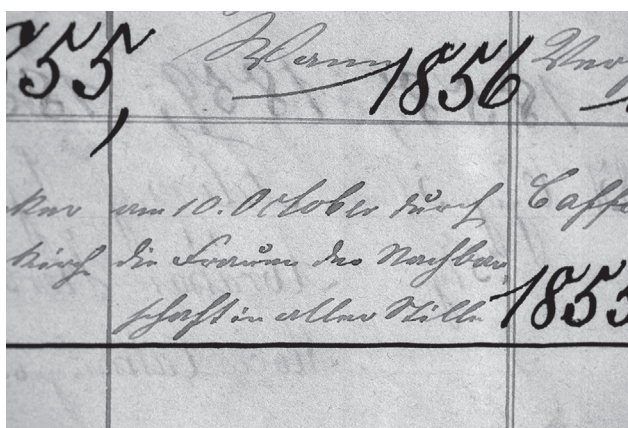 855, Wann 1856 Ver
am 10. October durch Caffe
kirch die Frauen der Nachbar
schaft in aller Stille 1855